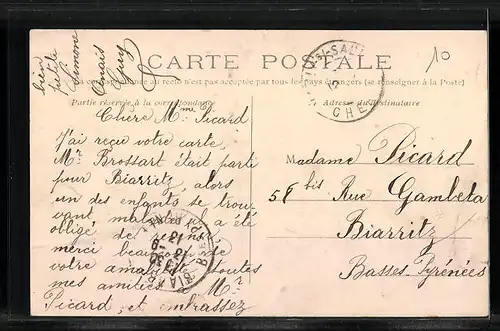 CARTE POSTALE
correspondance au recto n'est pas acceptée par tous les pays étrangers (se renseigner à la Poste)
Partie réservée à la correspondance
Adresse du Destinataire
10
bien
petite
Simone
Chère Mme Picard
J'ai reçu votre carte,
Mr. Brossart était parti
pour Biarritz, alors
un des enfants se trou-
vant malade, il a été
obligé de
merci beaucoup de
votre toutes
mes amitiés à Mr
Picard, et embrassez
Madame Picard
5, 8 bis Rue Gambeta
Biarritz
Basses-Pyrénées
CHER